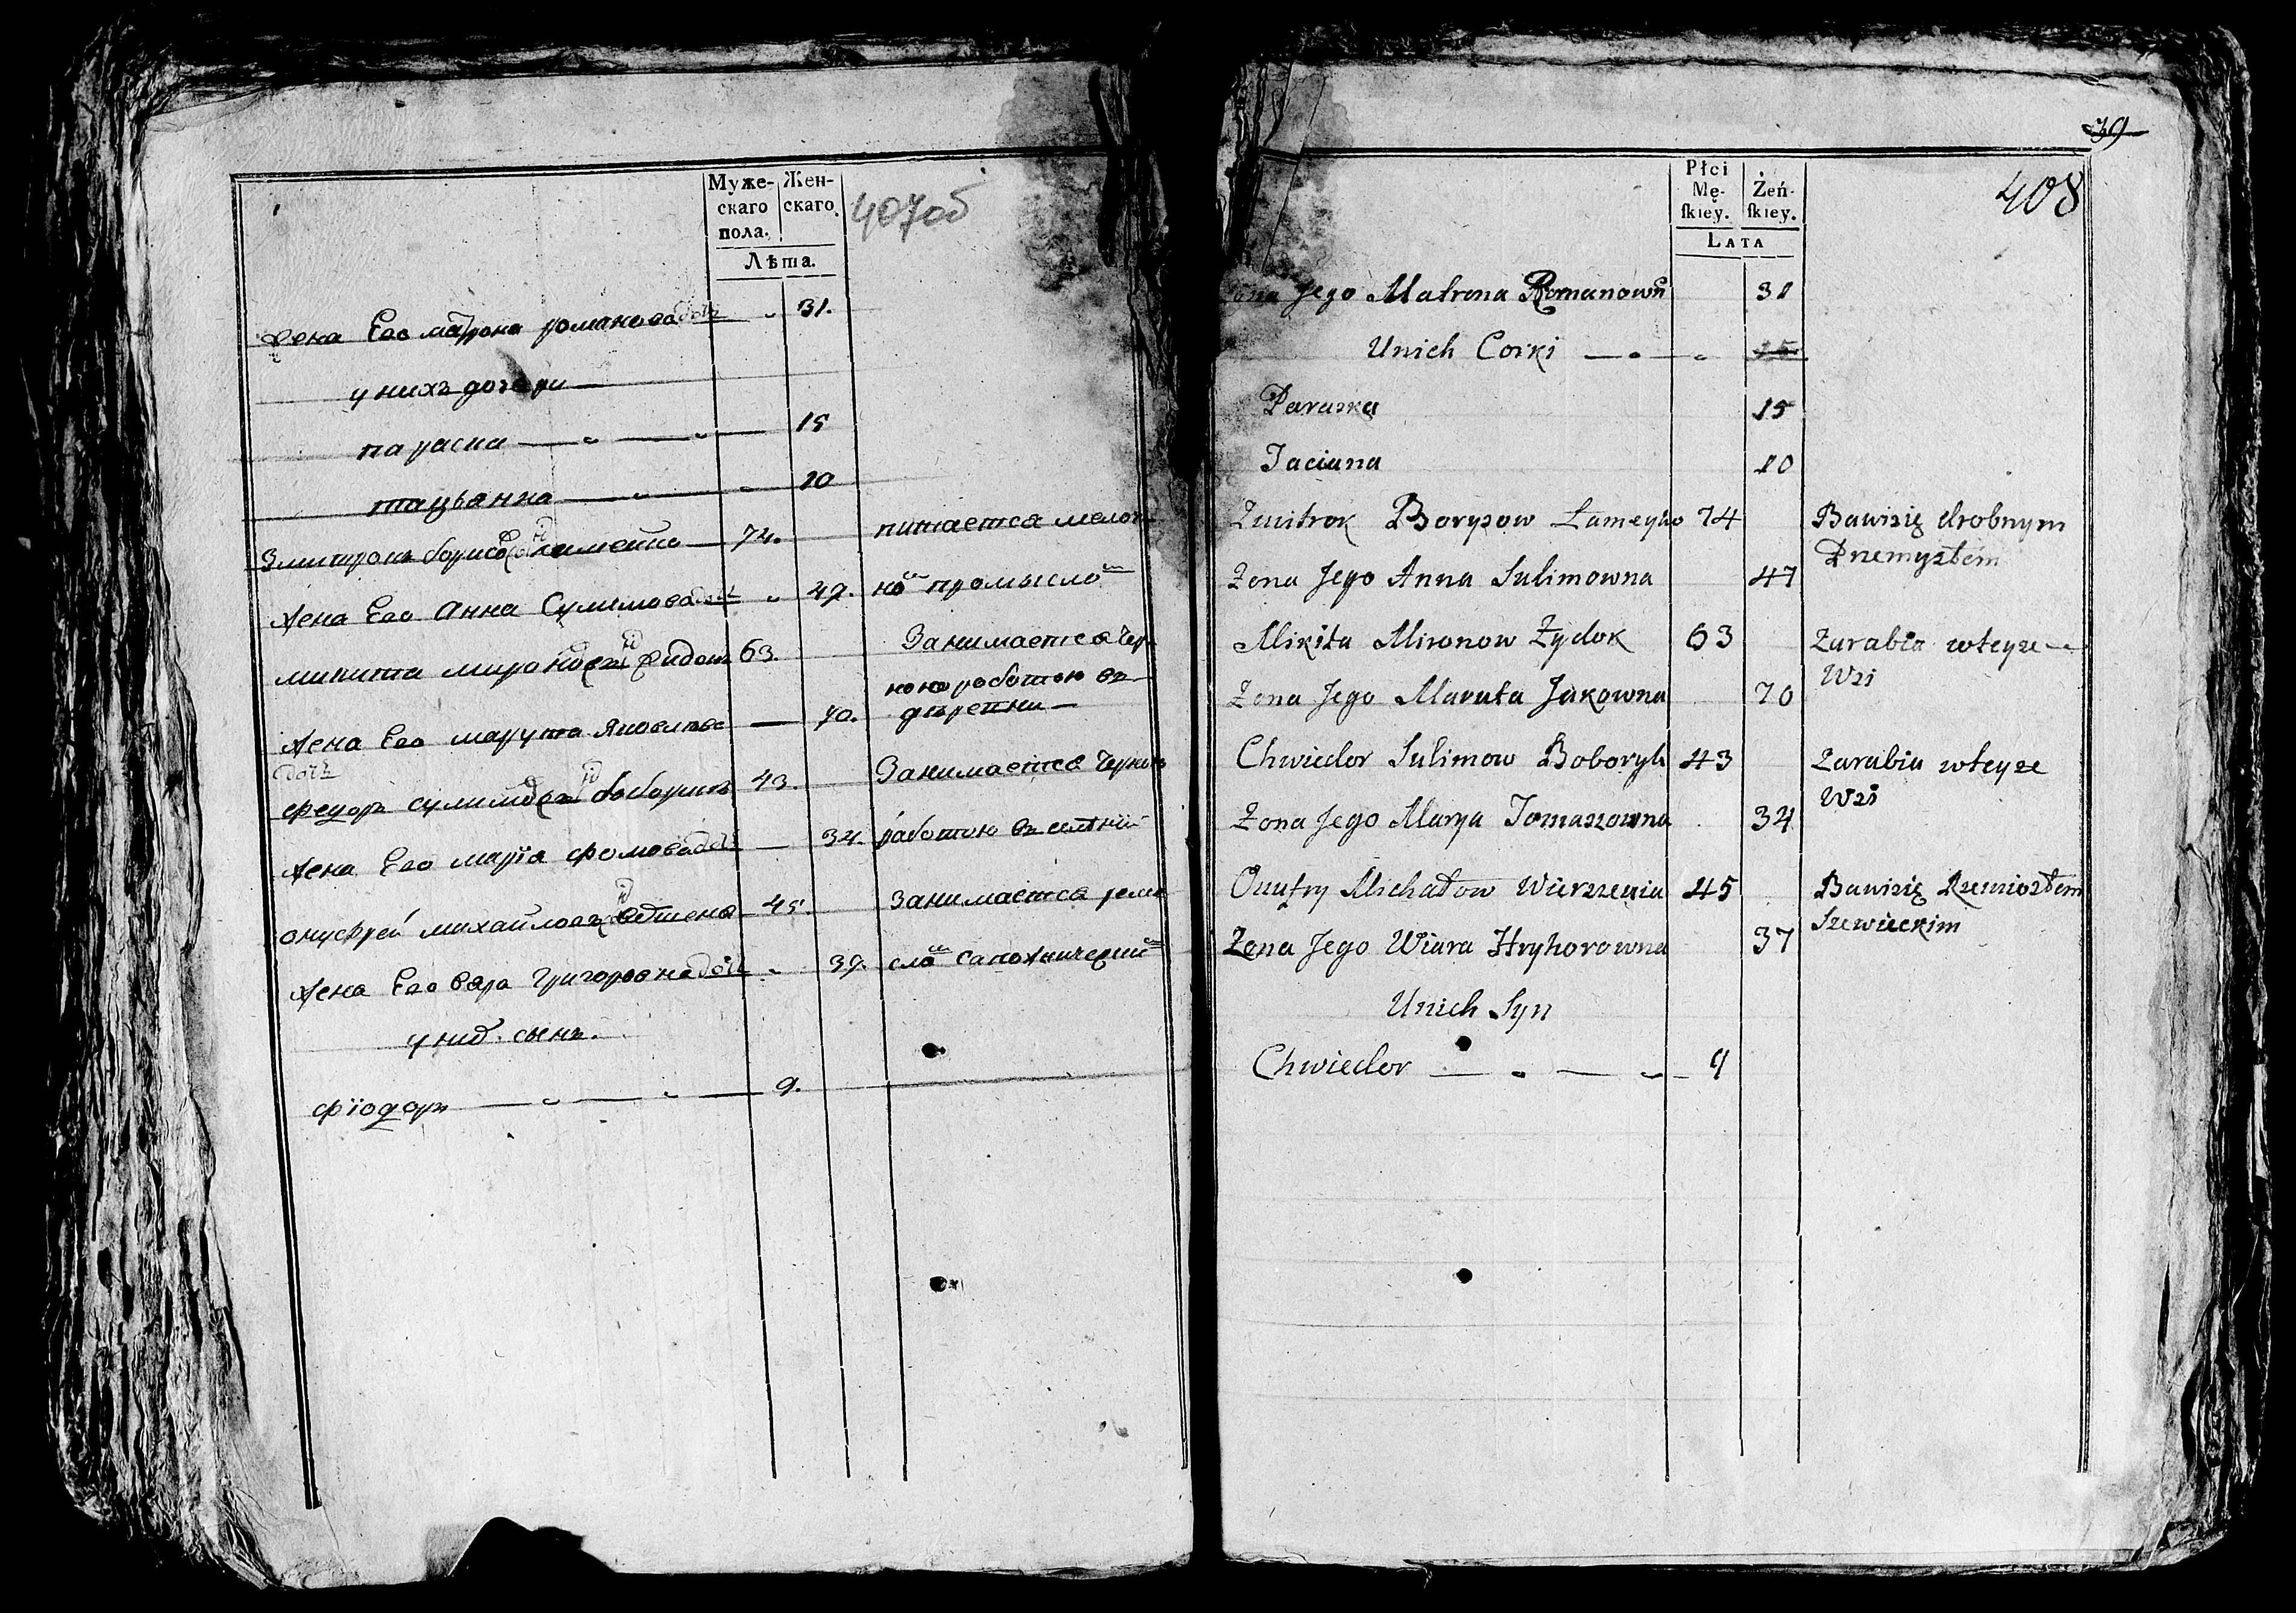 Муже-
скаго
пола.
Жен-
скаго.
Лѣта.
407об
жена Его матрона романова дочь „ 31.
у нихъ дочери
параска 15
тацьянна 10
Змитрокъ борисовъ ламейко 74. питается мелоч-
жена Его Анна Сулимова дочь „ 47. но промысло
микита мироновъ жидокъ 63. Занимается чер-
ною работою въ
жена Его марута Яковлева дочь 70. деревни
федоръ сулимовъ боборыкъ 43. Занимается черною
жена Его марїа фомова дочь 34. работою въ
онуфрей михайловъ 45. Занимается реме
жена Его вера григоровна дочь „ 37. сло сапожничерки
у них сынъ.
фїодоръ 9.
39
408
Płci
Mę-
skiey.
Żeń-
skiey.
LATA
Żona Jego Matrona Romanown 31
Unich Corki 15
Paraska 15
Taciana 10
Zmitrok Boryzow Łameyko 74 Bawisię drobnym
Przemysłem
Zona Jego Anna Sulimowna 47
Mikita Mironow Zydok 63 Zarabia wteysze
Wsi
Zona Jego Maruta Jakowna 70
Chwiedor Sulimow Boboryk 43 Zarabia wteysze
Wsi
Zona Jego Marya Tomaszowna 34
Onufry Michałow Wierszenia 45 Bawisię Rzemiosłem
Szewieckim
Zona Jego Wiara Hryhorowna 37
Unich Syn
Chwiedor 9